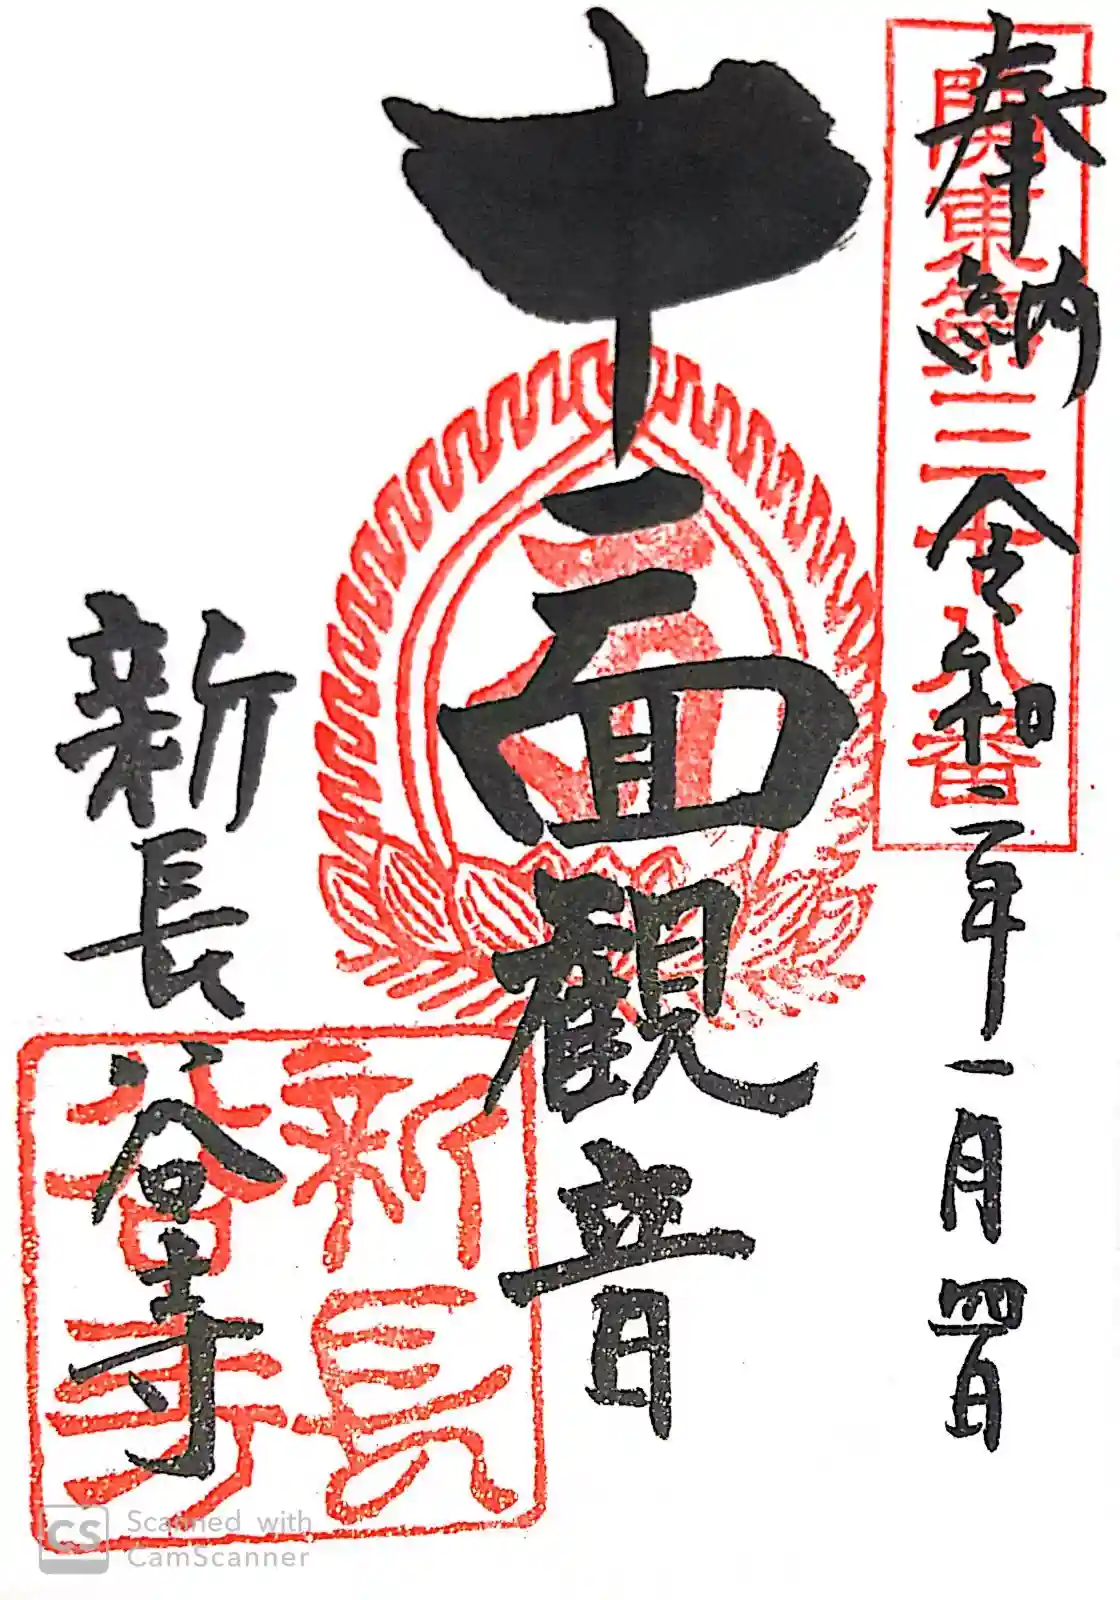 奉納 令和二年一月四日
関東第三十八番
十一面観音
新長谷寺
新長
谷寺
CS Scanned with
CamScanner